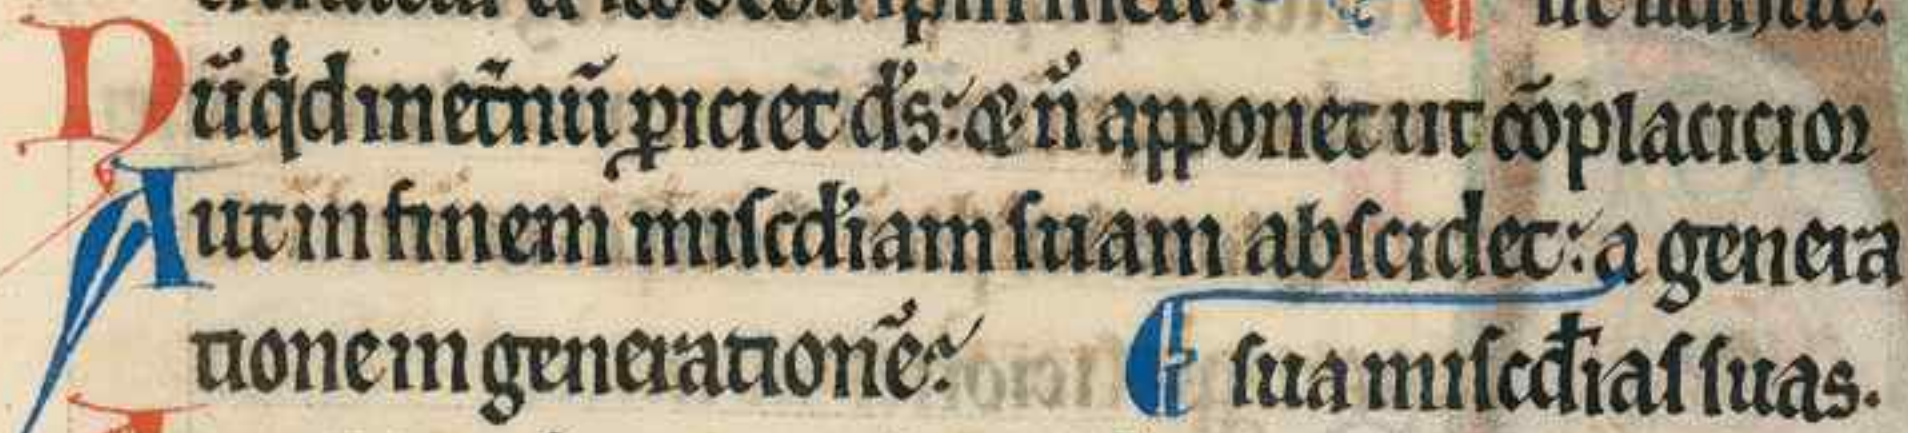 Nūq̇d in et̄nū ꝑiciet d's: & n̄ apponet ut cōplacicior
Aut in finem miscd'iam suam abscidet: a genera
tione in generationē: sua miscd'ias suas.